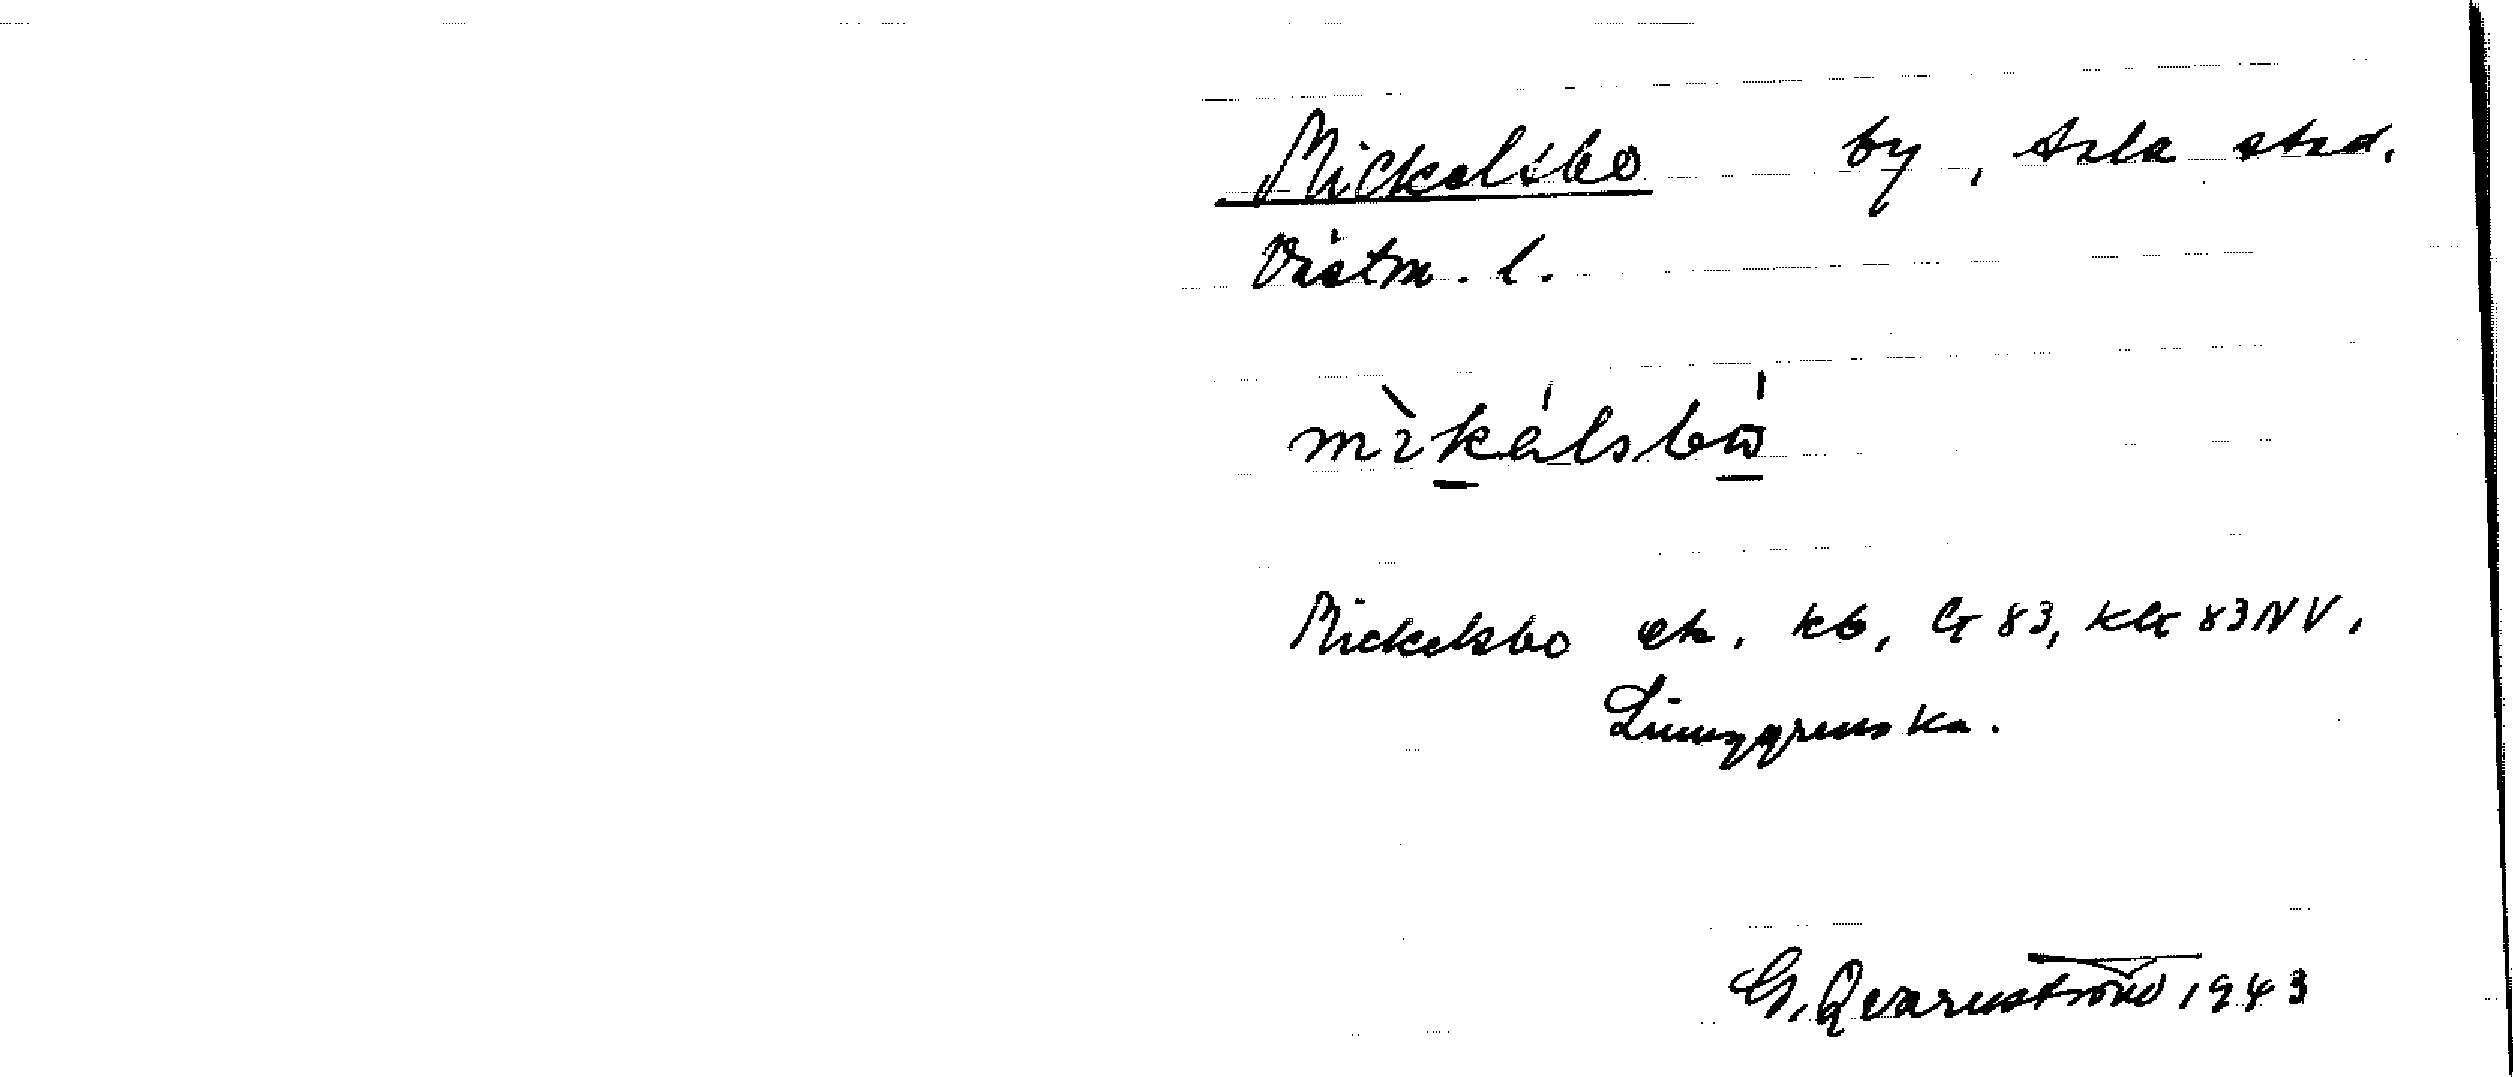 Mickelsbo by, Sala stad.
Västm. l.
mìkálsbó
Mickelsbo ek. kb, G 83, KG 83NV,
Ljunggrenska.
G. Qvarnström 1943